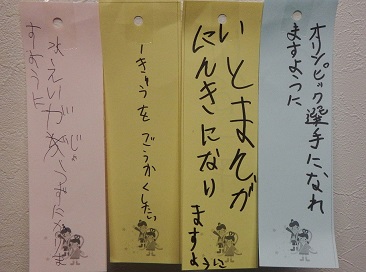 オリンピック選手になれ
ますように
いとまんが
にんきになり
ますように
一きゅうを ごうかくしたい
水えいがじょうずになりま
すように